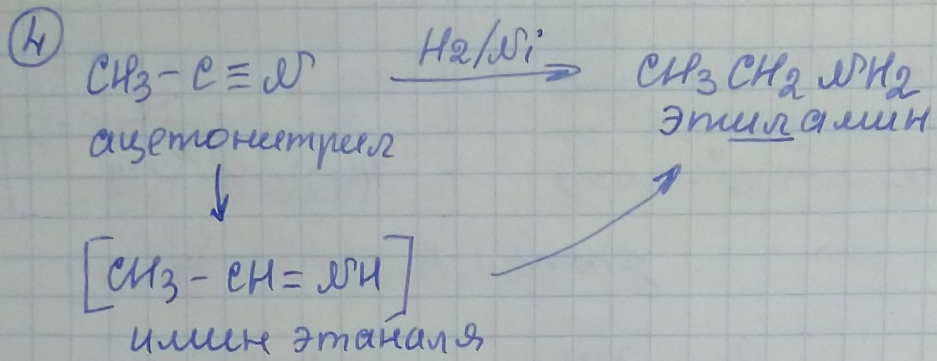 4
CH3 - C ≡ N H2/Ni → CH3CH2NH2
ацетонитрил этиламин
↓
[CH3 - CH = NH]
имин этаналя